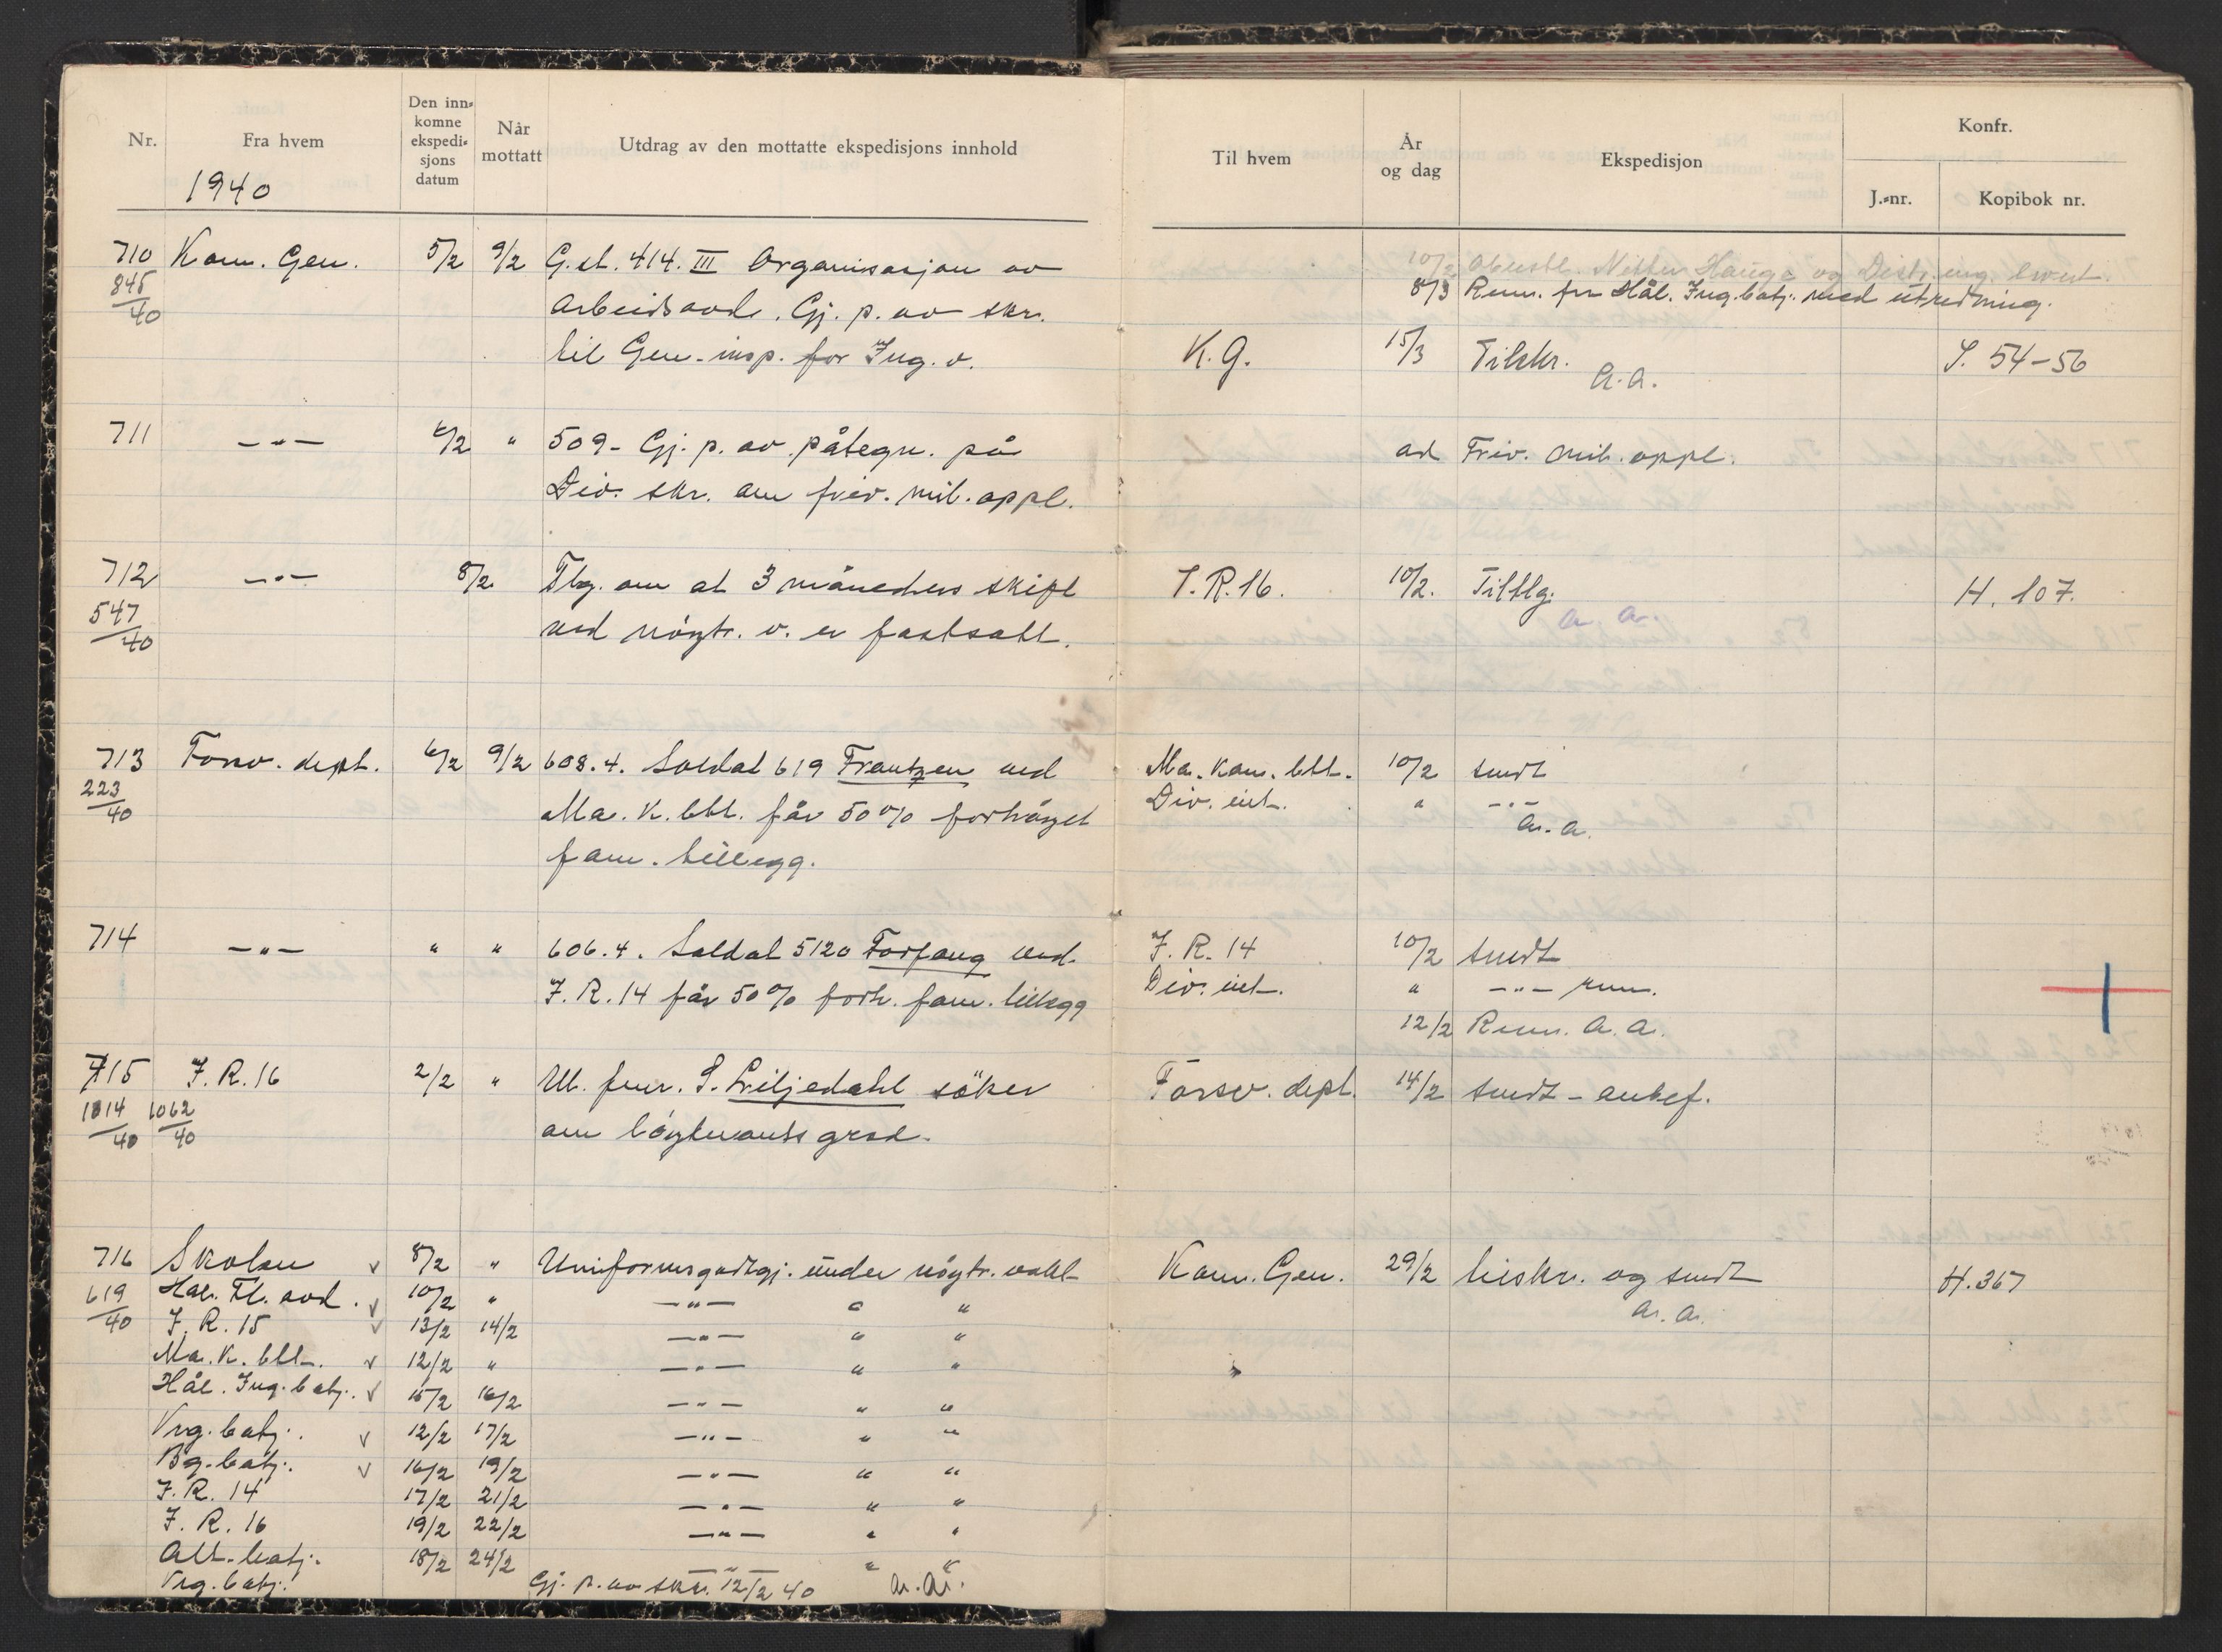 Nr.
Fra hvem
Den inn-
komne
ekspedi-
sjons
datum
Når
mottatt
Utdrag av den mottatte ekspedisjons innhold
1940
710 Kom. Gen. 5/2 9/2 G.st. 414. III Organisasjon av
845
40
Arbeidsavd. Gj. p. av skr.
til Gen. insp. for Ing. v.
711 —"— 6/2 " 509 - Gj. p. av påtegn. på
Div. skr. om friv. mil. oppl.
712 —"— 8/2 Tlg. om at 3 måneders skift
547
40
ved nöytr. v. er fastsatt.
713 Forsv. dept. 6/2 9/2 608.4. Soldat 619 Frantzen ved
223
40
Ma. K. btl. får 50% forhöyet
fam. tillegg.
714 —"— " " 606.4. Soldat 5120 Forfang ved
I.R. 14 får 50% forh. fam. tillegg
715 I.R. 16 2/2 " Ut. fenr. S. Liljedahl söker
1014 1062
40 40
om löytnants grad.
716 Skolen v 8/2 " Uniformsgodtgj. under nöytr. vakt
619
40
Hål. Fl. avd. v 10/2 " —"— " "
I.R. 15 v 13/2 14/2 —"— " "
Ma. K. btl. v 12/2 " —"— " "
Hål. Ing. batj. v 15/2 16/2 —"— " "
Vrg. batj. v 12/2 17/2 —"— " "
Bg. batj. v 16/2 19/2 —"— " "
I.R. 14 17/2 21/2 —"— " "
I.R. 16 19/2 22/2 —"— " "
Alt. batj. 18/2 24/2 —"— " "
Vrg. batj. Gj. p. av skr. 12/2 40 a.a.
Til hvem
År
og dag
Ekspedisjon
Konfr.
J.-nr.
Kopibok nr.
10/2 Hauge og Distr. ing.
8/3 Rem. fra Hål. Ing. batj. med utredning.
K.G. 15/3 Tilskr. S. 54-56
a.a.
ad Friv. mil. oppl.
I.R. 16. 10/2. Tiltlg. H. 107.
a.a.
Ma. kan. btl. 10/2 sendt
Div. int. " —"—
a.a.
I.R. 14 10/2 sendt
Div. int. " —"— rem.
12/2 Rem. a.a.
Forsv. dept. 14/2 sendt - anbef.
Kom. Gen. 29/2 tilskr. og sendt H. 367
a.a.
"